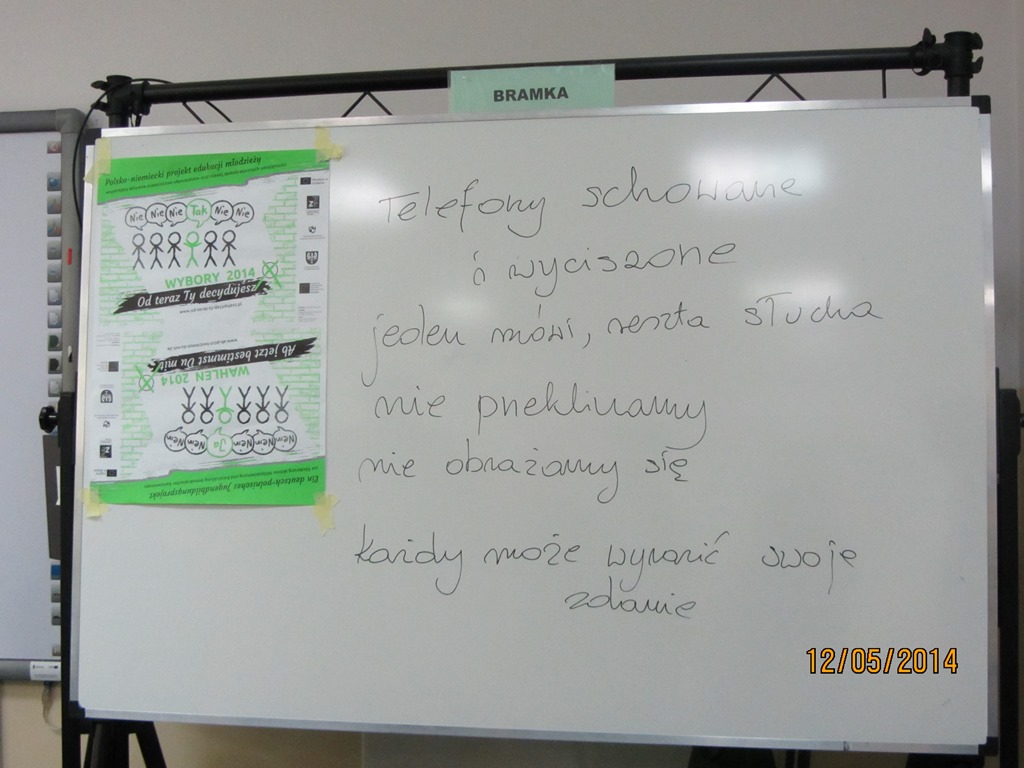 BRAMKA
Polsko-niemiecki projekt edukacji młodzieży
Nie Nie Nie Tak Nie Nie
WYBORY 2014
Od teraz Ty decydujesz
www.od-teraz-ty-decydujesz.pl
Ab jetzt bestimmst Du mit
WAHLEN 2014
Nein Nein Nein Nein Ja Nein
Ein deutsch-polnisches Jugendbildungsprojekt
Telefony schowane
i wyciszone
jeden mówi, reszta słucha
nie przeklinamy
nie obrażamy się
Każdy może wyrazić swoje
zdanie
12/05/2014